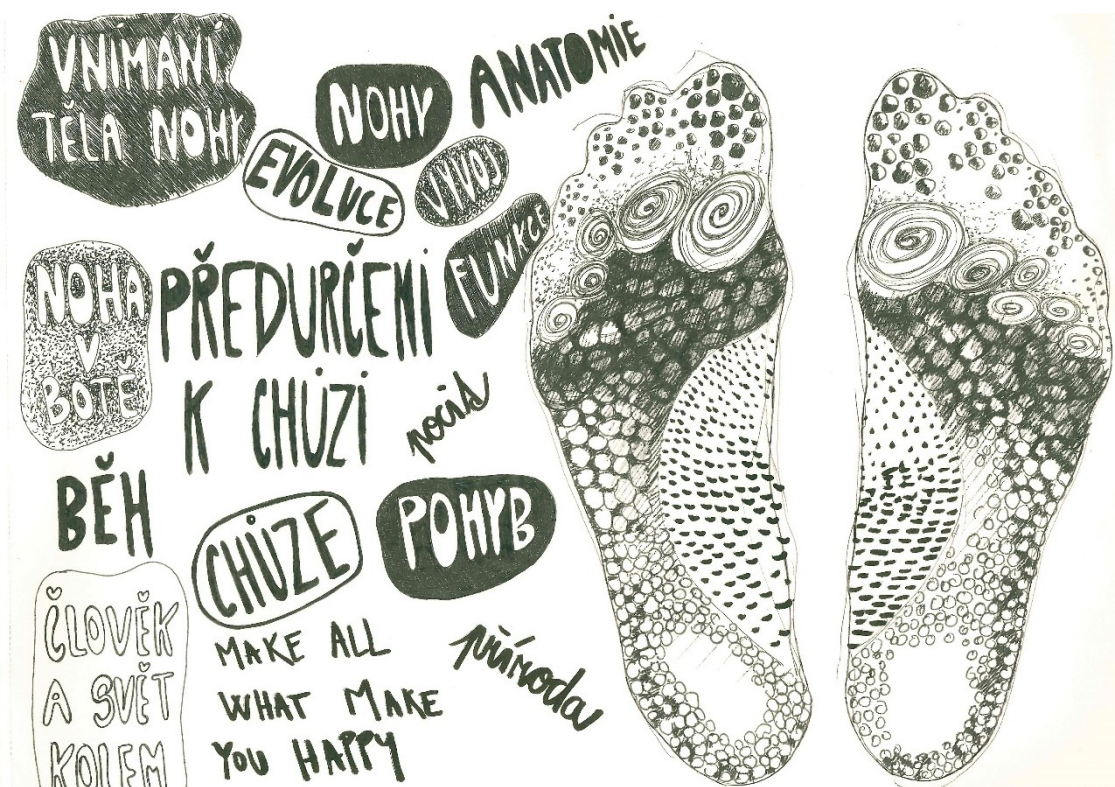 VNÍMÁNÍ
TĚLA NOHY
NOHY
ANATOMIE
EVOLUCE
VÝVOJ
FUNKCE
NOHA
V
BOTĚ
PŘEDURČENI
K CHŮZI
pocit
BĚH
CHŮZE
POHYB
ČLOVĚK
A SVĚT
KOLEM
MAKE ALL
WHAT MAKE
YOU HAPPY
příroda